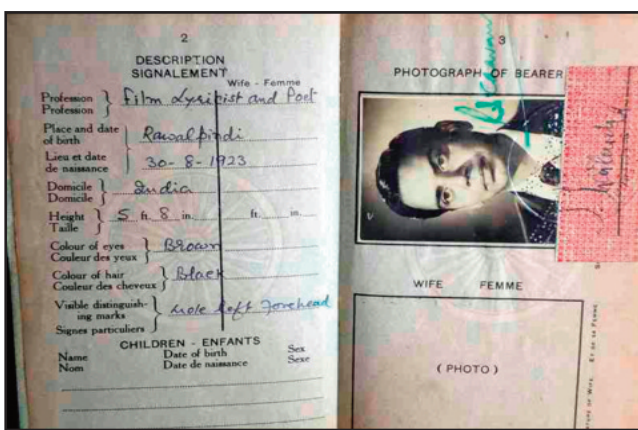 2
DESCRIPTION
SIGNALEMENT
Wife - Femme
Profession
Profession
Film Lyricist and Poet
Place and date
of birth
Rawalpindi
Lieu et date
de naissance
30-8-1923
Domicile
Domicile
India
Height
Taille
5 ft. 8 in.
ft. in.
Colour of eyes
Couleur des yeux
Brown
Colour of hair
Couleur des cheveux
Black
Visible distinguish-
ing marks
Signes particuliers
Mole left Forehead
CHILDREN - ENFANTS
Name Date of birth Sex
Nom Date de naissance Sexe
3
PHOTOGRAPH OF BEARER
WIFE FEMME
(PHOTO)